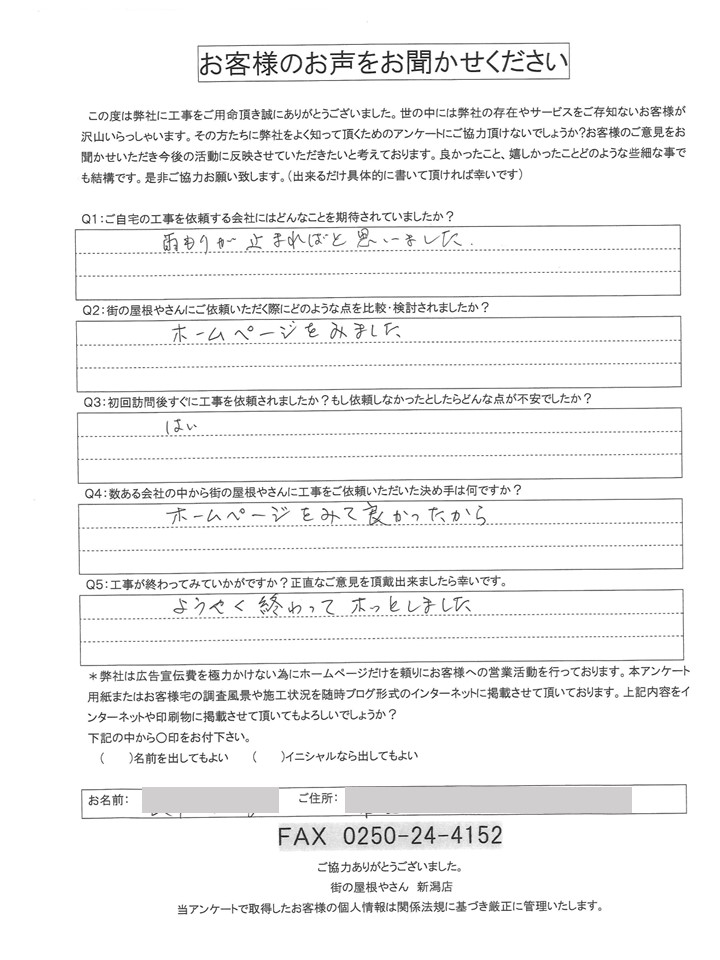 お客様のお声をお聞かせください
この度は弊社に工事をご用命頂き誠にありがとうございました。世の中には弊社の存在やサービスをご存知ないお客様が
沢山いらっしゃいます。その方たちに弊社をよく知って頂くためのアンケートにご協力頂けないでしょうか?お客様のご意見をお
聞かせいただき今後の活動に反映させていただきたいと考えております。良かったこと、嬉しかったことどのような些細な事で
も結構です。是非ご協力お願い致します。(出来るだけ具体的に書いて頂ければ幸いです)
Q1:ご自宅の工事を依頼する会社にはどんなことを期待されていましたか?
雨もりが止まればと思いました.
Q2:街の屋根やさんにご依頼いただく際にどのような点を比較・検討されましたか?
ホームページをみました
Q3:初回訪問後すぐに工事を依頼されましたか?もし依頼しなかったとしたらどんな点が不安でしたか?
はい
Q4:数ある会社の中から街の屋根やさんに工事をご依頼いただいた決め手は何ですか?
ホームページをみて良かったから
Q5:工事が終わってみていかがですか?正直なご意見を頂戴出来ましたら幸いです。
ようやく終わってホっとしました
*弊社は広告宣伝費を極力かけない為にホームページだけを頼りにお客様への営業活動を行っております。本アンケート
用紙またはお客様宅の調査風景や施工状況を随時ブログ形式のインターネットに掲載させて頂いております。上記内容をイ
ンターネットや印刷物に掲載させて頂いてもよろしいでしょうか?
下記の中から〇印をお付下さい。
( )名前を出してもよい ( )イニシャルなら出してもよい
お名前: ご住所:
FAX 0250-24-4152
ご協力ありがとうございました。
街の屋根やさん 新潟店
当アンケートで取得したお客様の個人情報は関係法規に基づき厳正に管理いたします。